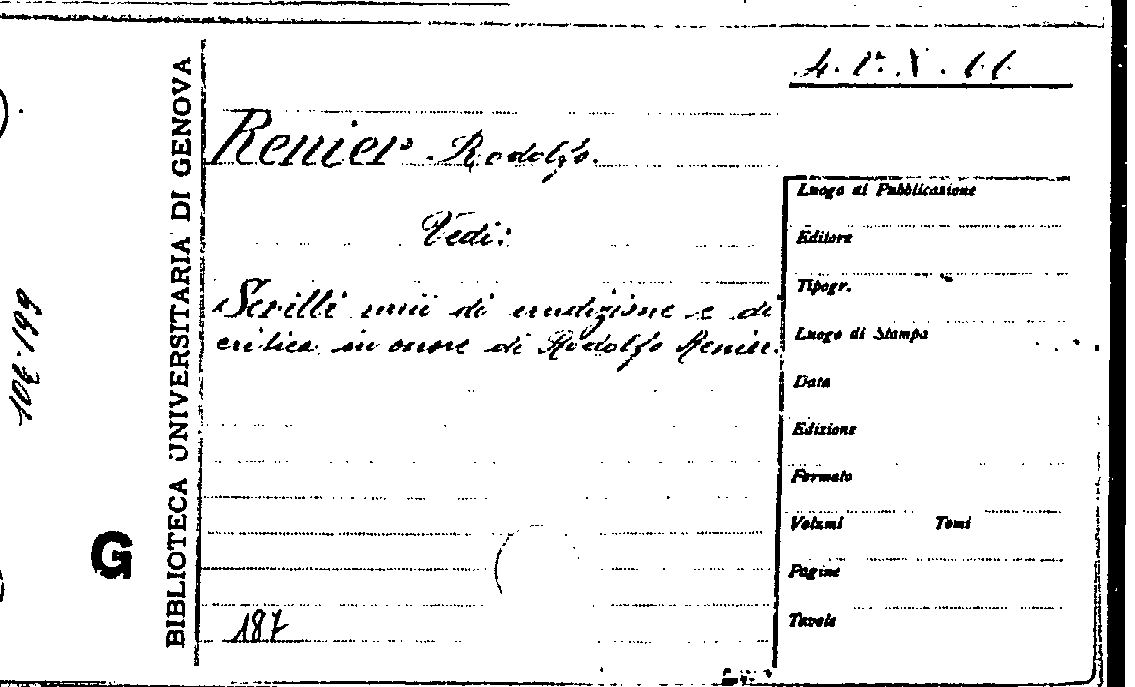 4. V. X. 11
Renier Rodolfo.
Vedi:
Scritti varii di erudizione e di
critica in onore di Rodolfo Renier.
187
BIBLIOTECA UNIVERSITARIA DI GENOVA
G
Luogo di Pubblicazione
Editore
Tipogr.
Luogo di Stampa
Data
Edizione
Formato
Volumi Tomi
Pagine
Tavole